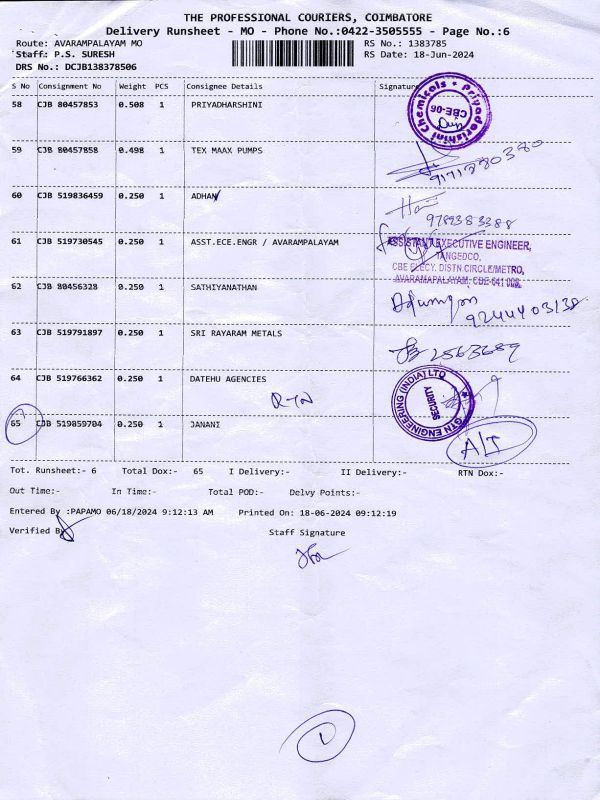 THE PROFESSIONAL COURIERS, COIMBATORE
Delivery Runsheet - MO - Phone No.:0422-3505555 - Page No.:6
Route: AVARAMPALAYAM MO RS No.: 1383785
Staff: P.S. SURESH RS Date: 18-Jun-2024
DRS No.: DCJB138378506
S No Consignment No Weight PCS Consignee Details Signature
58 CJB 80457853 0.508 1 PRIYADHARSHINI
Priyadarshini Chemicals CBE-06
59 CJB 80457858 0.498 1 TEX MAAX PUMPS
9171280380
60 CJB 519836459 0.250 1 ADHAN
9789383288
61 CJB 519730545 0.250 1 ASST.ECE.ENGR / AVARAMPALAYAM
ASSISTANT EXECUTIVE ENGINEER,
TANGEDCO,
CBE ELECY. DISTN.CIRCLE/METRO,
AVARAMAPALAYAM, CBE-641 006.
62 CJB 80456328 0.250 1 SATHIYANATHAN
9244403138
63 CJB 519791897 0.250 1 SRI RAYARAM METALS
2563689
64 CJB 519766362 0.250 1 DATEHU AGENCIES
RTN
GTN ENGINEERING (INDIA) LTD
SECURITY
65 CJB 519859704 0.250 1 JANANI
A/I
Tot. Runsheet:- 6 Total Dox:- 65 I Delivery:- II Delivery:- RTN Dox:-
Out Time:- In Time:- Total POD:- Delvy Points:-
Entered By :PAPAMO 06/18/2024 9:12:13 AM Printed On: 18-06-2024 09:12:19
Verified By Staff Signature
1